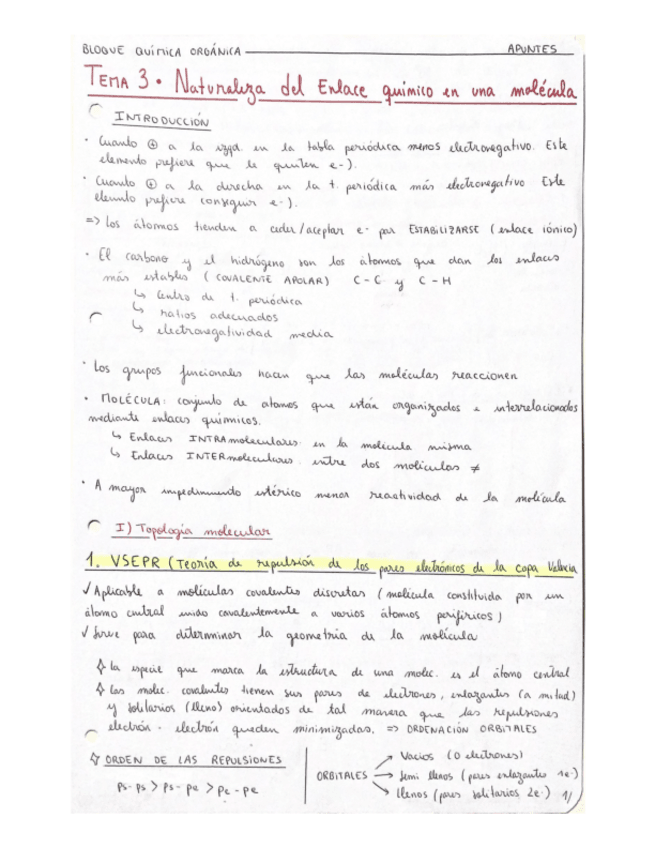 BLOQUE QUÍMICA ORGÁNICA APUNTES
TEMA 3 • Naturaleza del Enlace químico en una molécula
INTRODUCCIÓN
• Cuanto ⊕ a la izqa. en la tabla periódica menos electronegativo. Este
elemento prefiere que le quiten e-).
• Cuanto ⊕ a la derecha en la t. periódica más electronegativo Este
elemento prefiere conseguir e-).
=> los átomos tienden a ceder/aceptar e- por ESTABILIZARSE (enlace iónico)
• El carbono y el hidrógeno son los átomos que dan los enlaces
más estables (COVALENTE APOLAR) C-C y C-H
↳ Centro de t. periódica
↳ ratios adecuados
↳ electronegatividad media
• Los grupos funcionales hacen que las moléculas reaccionen
• MOLÉCULA: conjunto de átomos que están organizados e interrelacionados
mediante enlaces químicos.
↳ Enlaces INTRAmoleculares: en la molécula misma
↳ Enlaces INTERmoleculares: entre dos moléculas ≠
• A mayor impedimento estérico menor reactividad de la molécula
I) Topología molecular
1. VSEPR (Teoría de repulsión de los pares electrónicos de la capa Valencia
✓ Aplicable a moléculas covalentes discretas (molécula constituida por un
átomo central unido covalentemente a varios átomos periféricos)
✓ Sirve para determinar la geometría de la molécula
✧ la especie que marca la estructura de una molec. es el átomo central
✧ Las molec. covalentes tienen sus pares de electrones, enlazantes (a mitad)
y solitarios (lleno) orientados de tal manera que las repulsiones
electrón - electrón queden minimizadas. => ORDENACIÓN ORBITALES
✧ ORDEN DE LAS REPULSIONES
ps-ps > ps-pe > pe-pe
ORBITALES → Vacíos (0 electrones)
→ Semi llenos (pares enlazantes 1e-)
→ llenos (pares solitarios 2e-) 1/